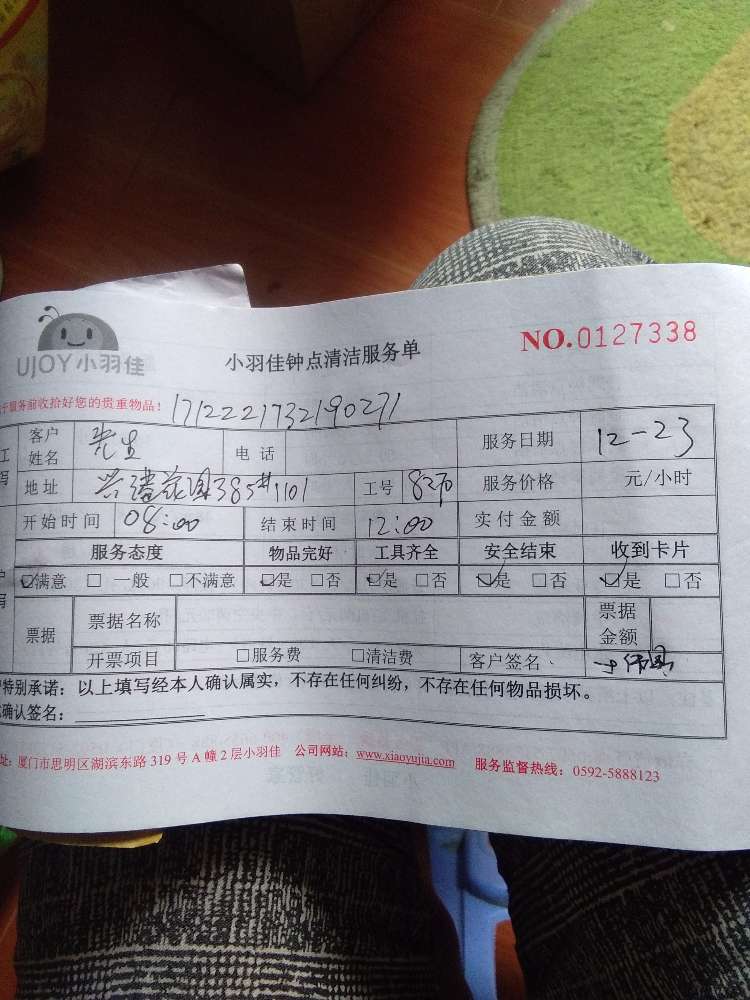 UJOY小羽佳
小羽佳钟点清洁服务单
NO.0127338
于服务前收拾好您的贵重物品!
1712221732190271
客户姓名 先生 电话 服务日期 12-23
地址 385#1101 工号 8270 服务价格 元/小时
开始时间 08:00 结束时间 12:00 实付金额
服务态度 物品完好 工具齐全 安全结束 收到卡片
☑满意 □一般 □不满意 ☑是 □否 ☑是 □否 ☑是 □否 ☑是 □否
票据 票据名称 票据金额
开票项目 □服务费 □清洁费 客户签名
特别承诺：以上填写经本人确认属实，不存在任何纠纷，不存在任何物品损坏。
确认签名：
址：厦门市思明区湖滨东路 319 号 A 幢 2 层小羽佳 公司网站：www.xiaoyujia.com 服务监督热线：0592-5888123